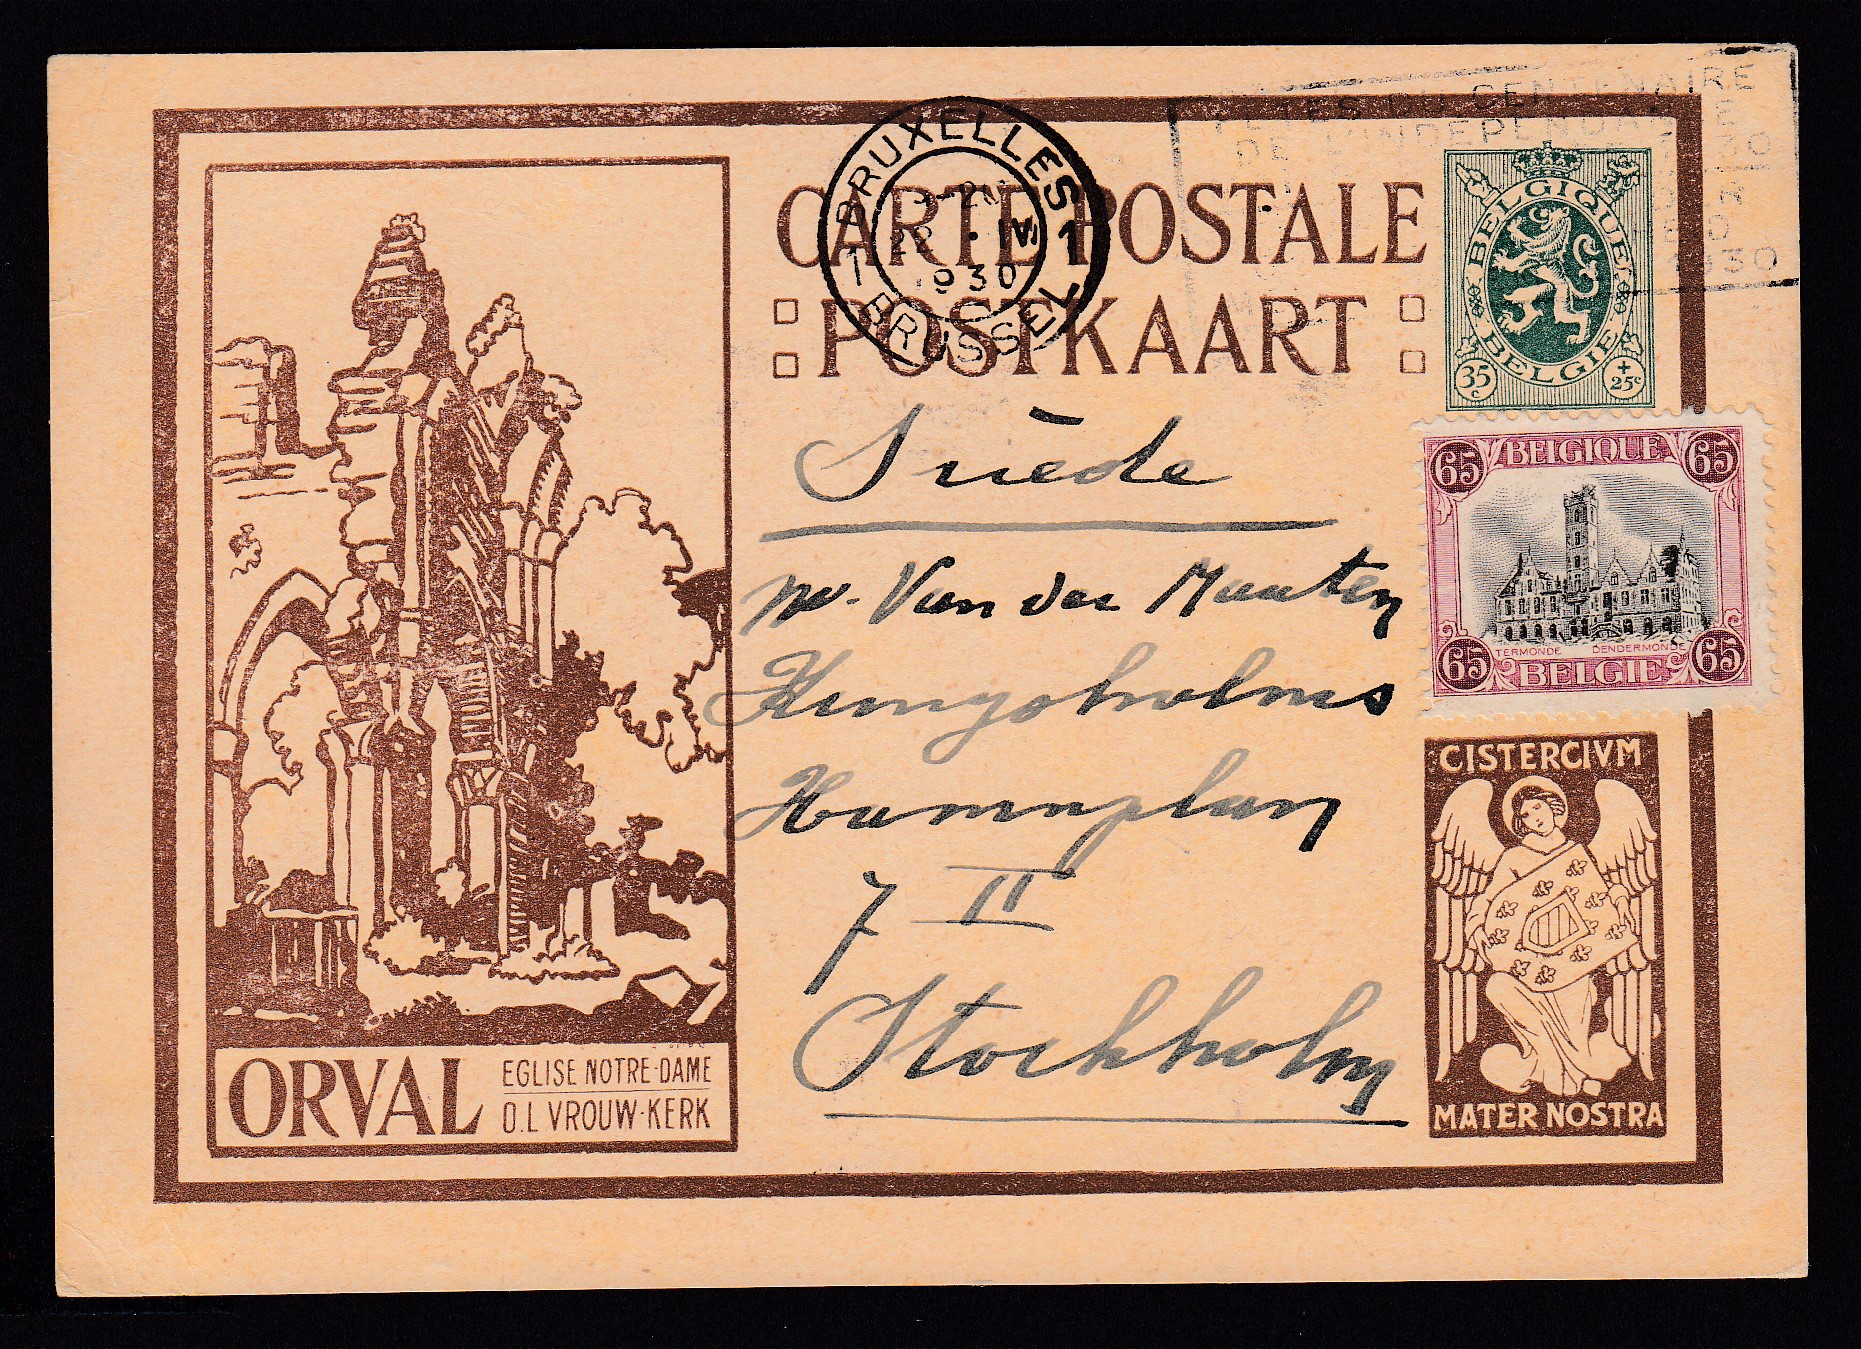 FETES DU CENTENAIRE
DE L'INDEPENDANCE
1930
BRUXELLES 1
1930
1 BRUSSEL
CARTE POSTALE
POSTKAART
BELGIQUE
BELGIE
35 c
+ 25c
BELGIQUE
65 65
TERMONDE DENDERMONDE
65 65
BELGIE
Suède
Van der Maaten
Kungsholms
Hamnplan
7 II
Stockholm
ORVAL
EGLISE NOTRE-DAME
O.L VROUW-KERK
CISTERCIVM
MATER NOSTRA